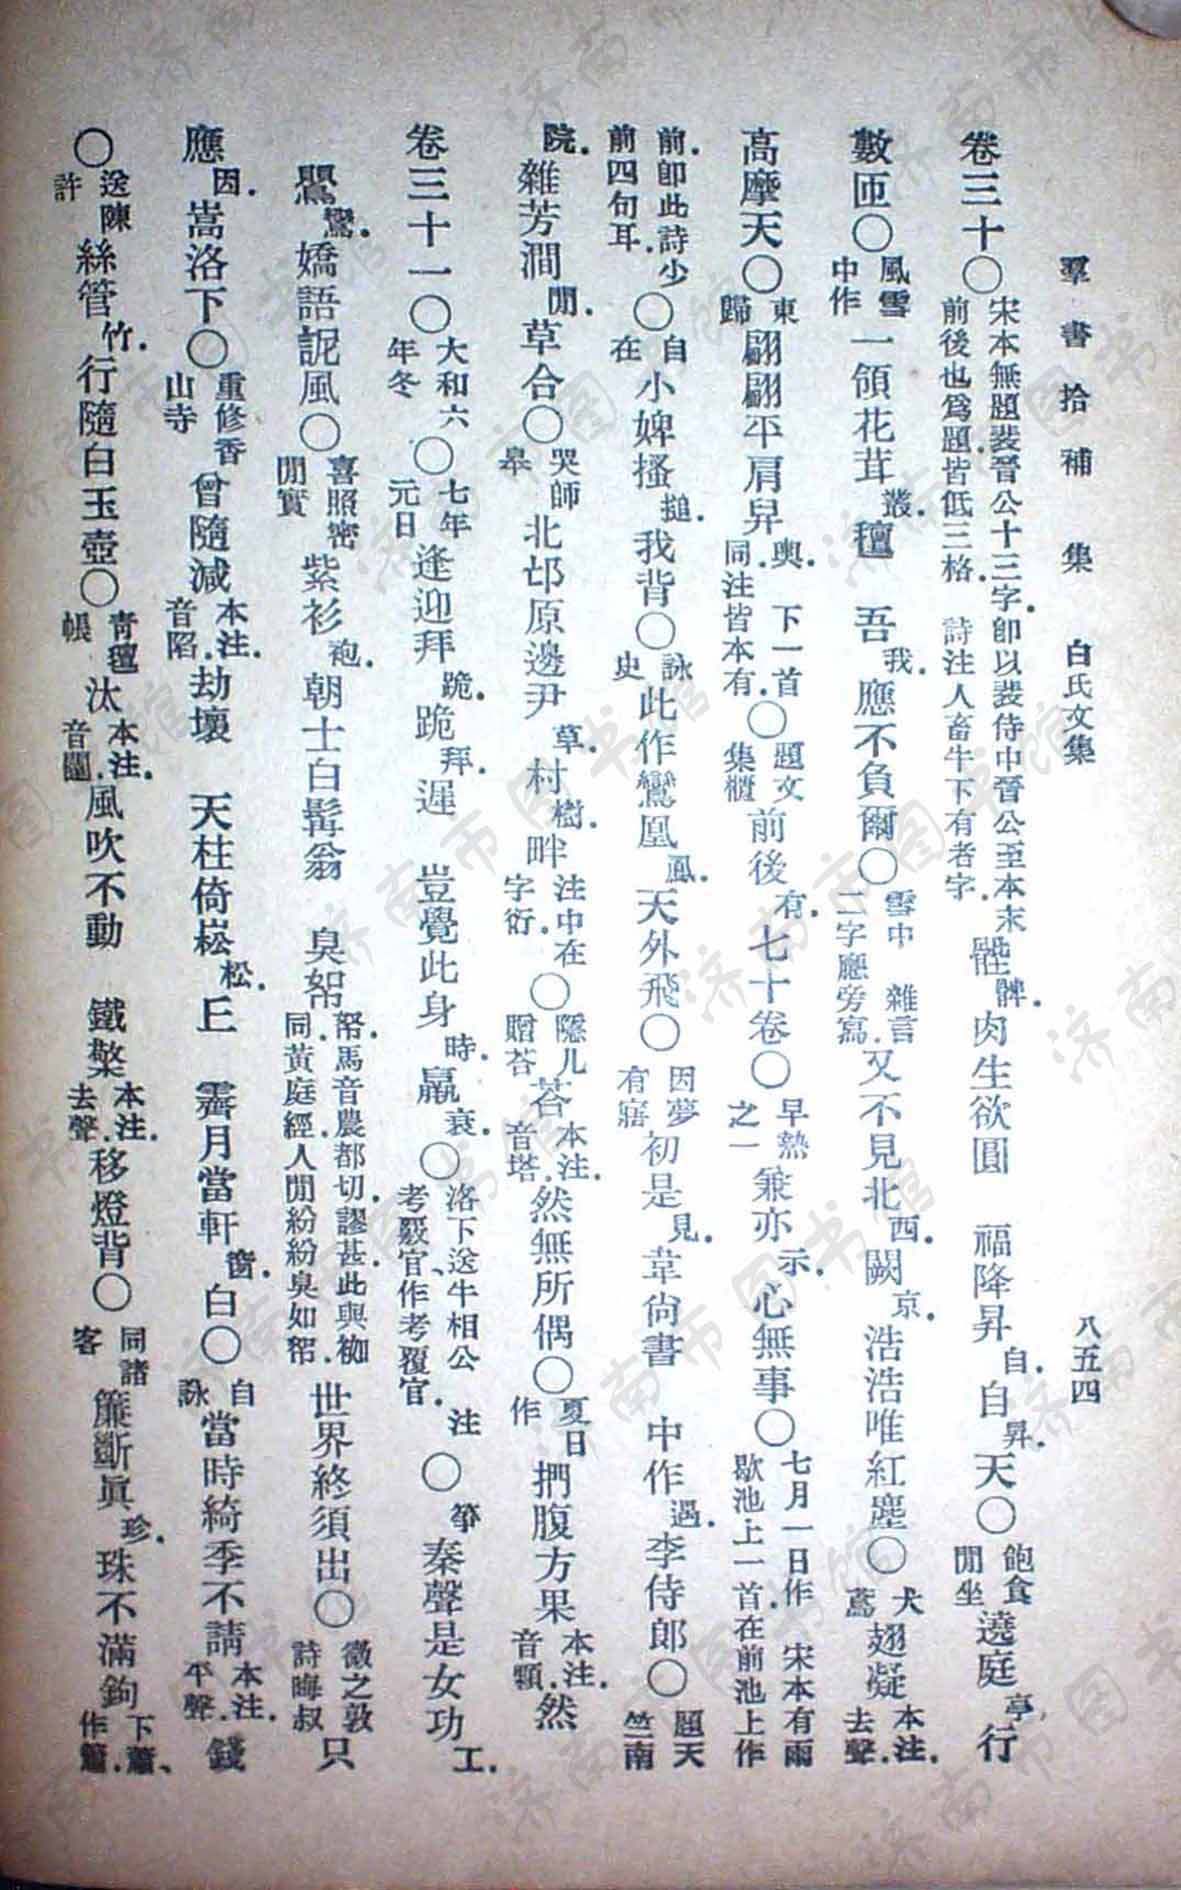 羣書拾補　集　白氏文集　八五四
卷三十〇宋本無題裴晉公十三字.卽以裴侍中晉公至本末前後也爲題.皆低三格.　詩注人畜牛下有者字.　髀.肉生欲圓　福降昇自.自昇.天〇飽食閒坐遶庭亭.行
數匝〇風雪中作一領花茸叢.氊　吾我.應不負爾〇雪中　雜言二字廳旁寫.又不見北西.闕京.浩浩唯紅塵〇犬鳶翅凝本注.去聲.
高摩天〇東歸翩翩平肩舁輿.　下一首同注皆本有.〇題文集櫃前後有.七十卷〇早熱之一兼亦示.心無事〇七月一日作.　宋本有雨歇池上一首.在前池上作
前.卽此詩少前四句耳.〇自在小婢搔搥.我背〇詠史此作鸞凰鳳.天外飛〇因夢有寤初是見.韋尙書　中作遇.李侍郎〇題天竺南
院.雜芳澗閒.草合〇哭師皋北邙原邊尹草.村樹.畔注中在字衍.〇隱几贈荅荅本注.音塔.然無所偶〇夏日作捫腹方果本注.音顆.然
卷三十一〇大和六年冬〇七年元日逢迎拜跪.跪拜.遲　豈覺此身時.羸衰.〇洛下送牛相公　注考覈官、作考覆官.〇箏秦聲是女功工.
鸎鸞.嬌語詉風〇喜照密閒實紫衫袍.朝士白髯翁　臭帤帑.馬音農都切.謬甚.此與袽同.黃庭經.人閒紛紛臭如帤.世界終須出〇微之敦詩晦叔只
應因.嵩洛下〇重修香山寺曾隨減本注.音陷.劫壞　天柱倚崧松.　霽月當軒窗.白〇自詠當時綺季不請本注.平聲.錢
〇送陳許絲管竹.行隨白玉壺〇靑氊帳汰本注.音闥.風吹不動　鐵檠本注.去聲.移燈背〇同諸客簾斷眞珍.珠不滿鉤下簾、作簫.